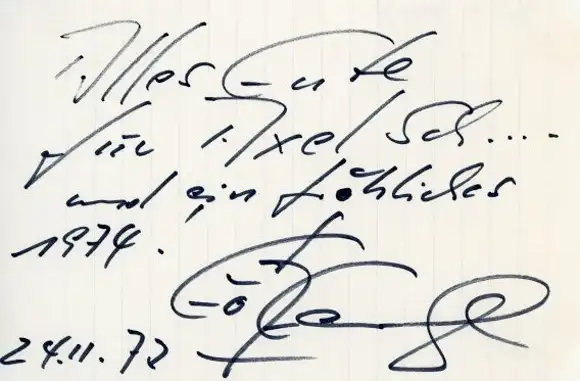 Alles Gute
für Axel Sch....
und ein fröhliches
1974.
24.11.73